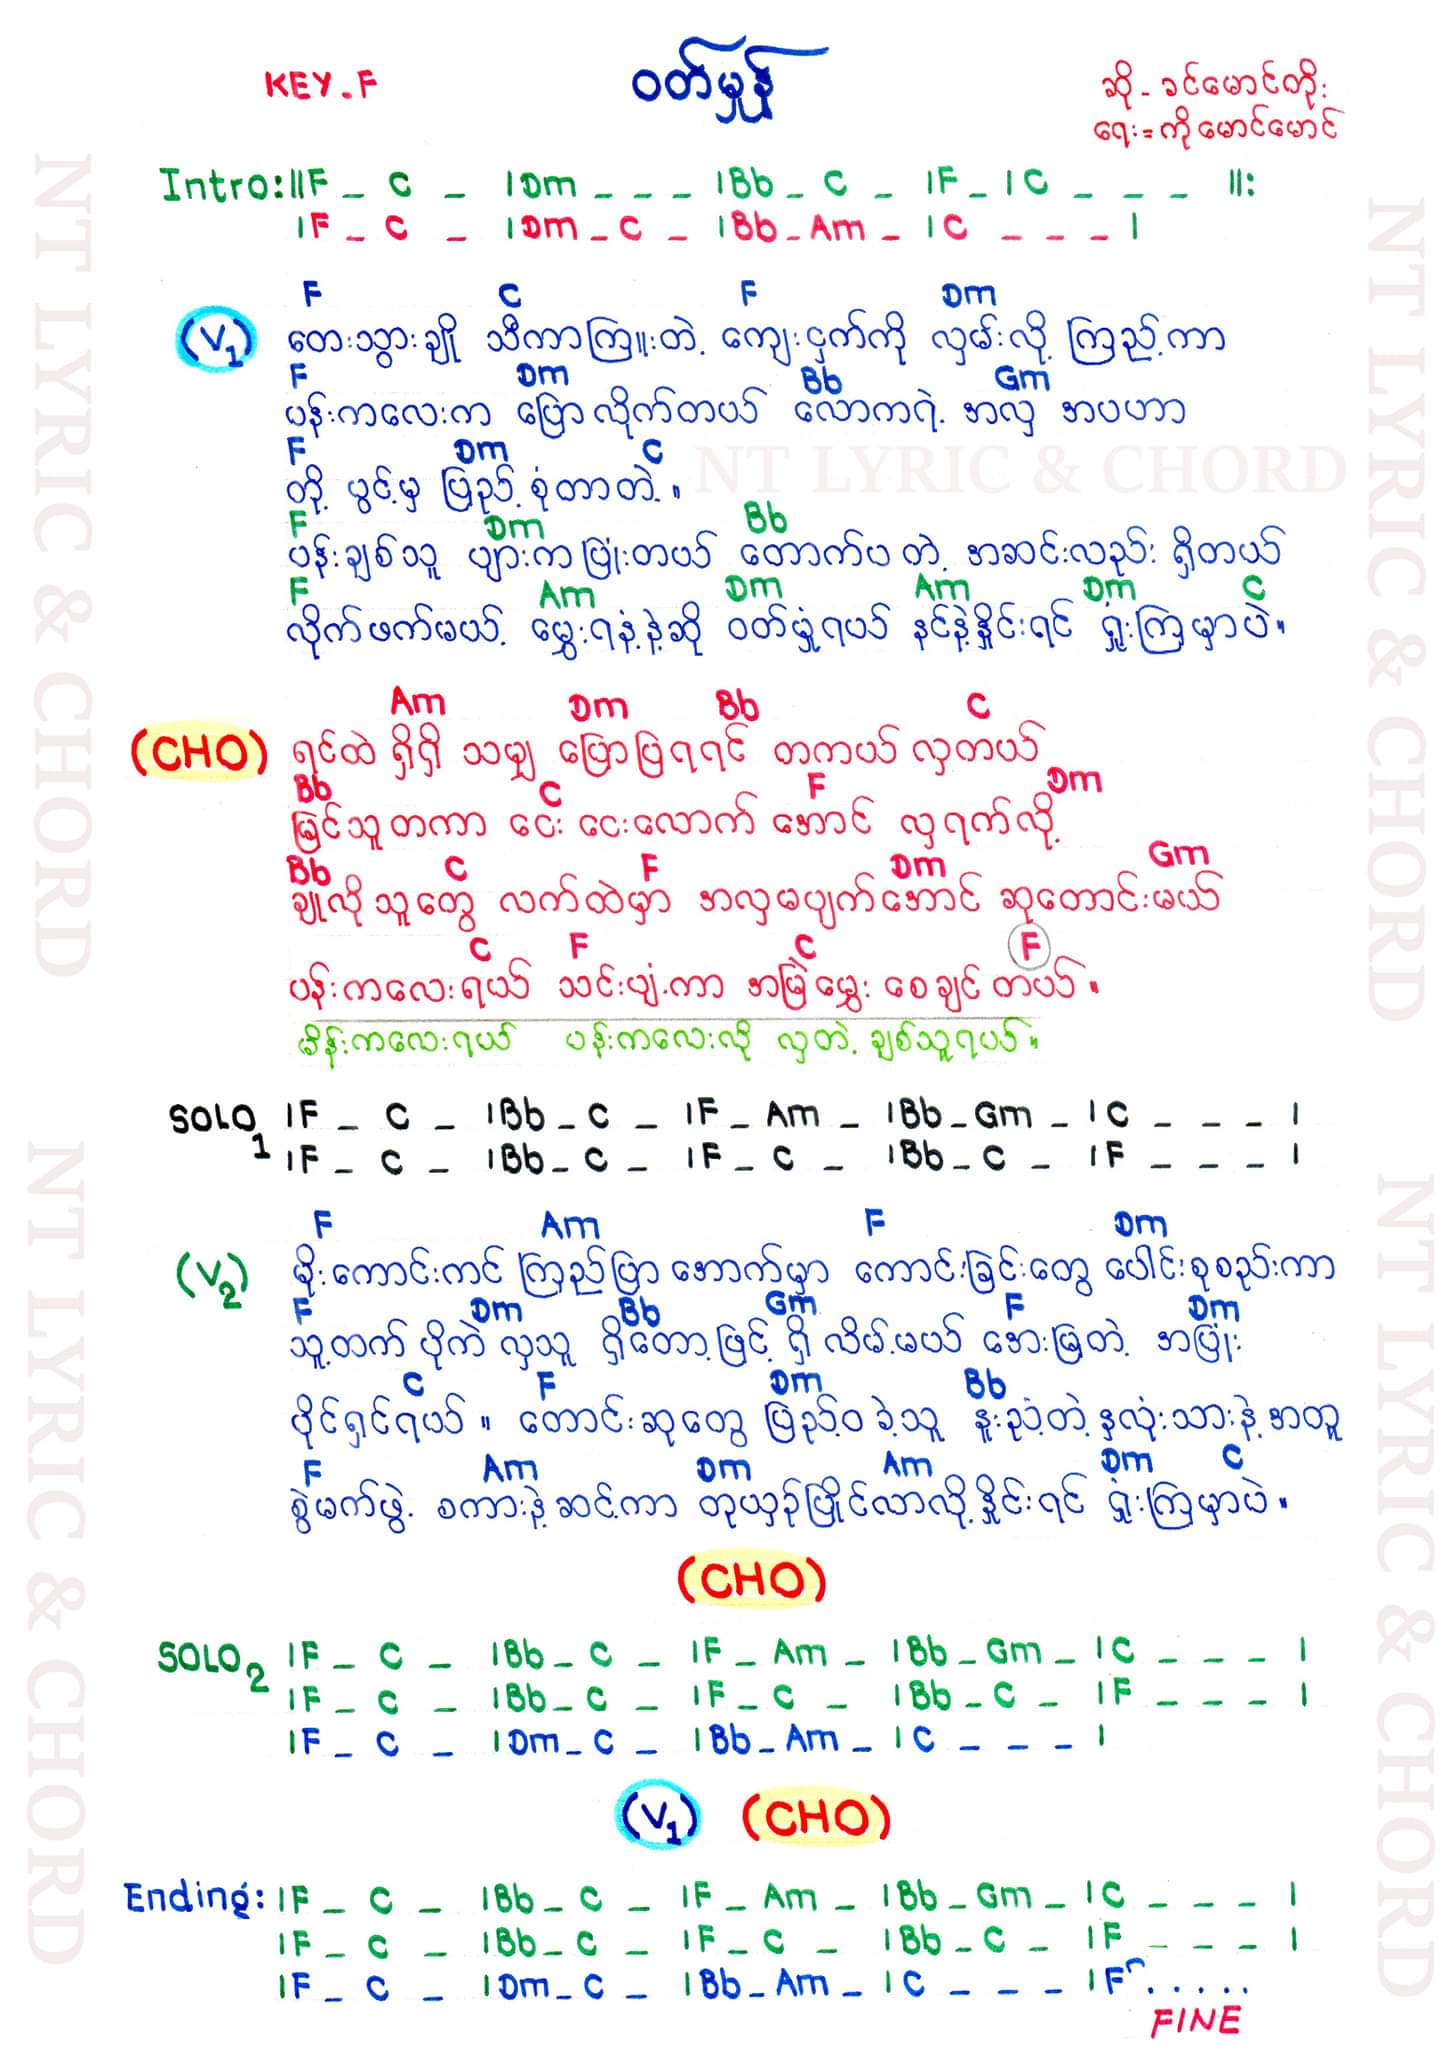 KEY.F
ဝတ်မှုန်
ဆို - ခင်မောင်တိုး
ရေး = ကိုမောင်မောင်
Intro: ||F _ C _ |Dm _ _ _ |Bb _ C _ |F _ |C _ _ _ ||:
|F _ C _ |Dm _ C _ |Bb _ Am _ |C _ _ _ |
F C F Dm
(V1) တေးသွားချို သီကာကြူးတဲ့ ကျေးငှက်ကို လှမ်းလို့ ကြည့်ကာ
F Dm Bb Gm
ပန်းကလေးက ပြောလိုက်တယ် လောကရဲ့ အလှ အပဟာ
F Dm C
တို့ ပွင့်မှ ပြည့်စုံတာတဲ့။
F Dm Bb
ပန်းချစ်သူ ပျားကပြုံးတယ် တောက်ပတဲ့ အဆင်းလည်း ရှိတယ်
F Am Dm Am Dm C
လိုက်ဖက်မယ့် မွှေးရနံ့နဲ့ဆို ဝတ်မှုံရယ် နင်နဲ့နှိုင်းရင် ရှုံးကြမှာပဲ။
Am Dm Bb C
(CHO) ရင်ထဲ ရှိရှိ သမျှ ပြောပြရရင် တကယ် လှတယ်
Bb C F Dm
မြင်သူတကာ ငေး ငေးလောက်အောင် လှရက်လို့
Bb C F Dm Gm
ချူလိုသူတွေ လက်ထဲမှာ အလှမပျက်အောင် ဆုတောင်းမယ်
C F C F
ပန်းကလေးရယ် သင်းပျံ့ကာ အမြဲမွှေး စေချင်တယ်။
မိန်းကလေးရယ် ပန်းကလေးလို လှတဲ့ ချစ်သူရယ်။
SOLO1 |F _ C _ |Bb _ C _ |F _ Am _ |Bb _ Gm _ |C _ _ _ |
|F _ C _ |Bb _ C _ |F _ C _ |Bb _ C _ |F _ _ _ |
F Am F Dm
(V2) မိုးကောင်းကင် ကြည်ပြာအောက်မှာ ကောင်းခြင်းတွေ ပေါင်းစုစည်းကာ
F Dm Bb Gm F Dm
သူ့ထက် ပိုကဲ လှသူ ရှိတော့ဖြင့် ရှိလိမ့်မယ် အေးမြတဲ့ အပြုံး
C F Dm Bb
ပိုင်ရှင်ရယ်။ တောင်းဆုတွေ ပြည့်ဝခဲ့သူ နူးညံ့တဲ့ နှလုံးသားနဲ့ အတူ
F Am Dm Am Dm C
စွဲမက်ဖွဲ့ စကားနဲ့ဆင့်ကာ တုယှဉ်ပြိုင်လာလို့နှိုင်းရင် ရှုံးကြမှာပဲ။
(CHO)
SOLO2 |F _ C _ |Bb _ C _ |F _ Am _ |Bb _ Gm _ |C _ _ _ |
|F _ C _ |Bb _ C _ |F _ C _ |Bb _ C _ |F _ _ _ |
|F _ C _ |Dm _ C _ |Bb _ Am _ |C _ _ _ |
(V1) (CHO)
Ending: |F _ C _ |Bb _ C _ |F _ Am _ |Bb _ Gm _ |C _ _ _ |
|F _ C _ |Bb _ C _ |F _ C _ |Bb _ C _ |F _ _ _ |
|F _ C _ |Dm _ C _ |Bb _ Am _ |C _ _ _ |F . . . . .
FINE
NT LYRIC & CHORD
NT LYRIC & CHORD
NT LYRIC & CHORD
NT LYRIC & CHORD
NT LYRIC & CHORD